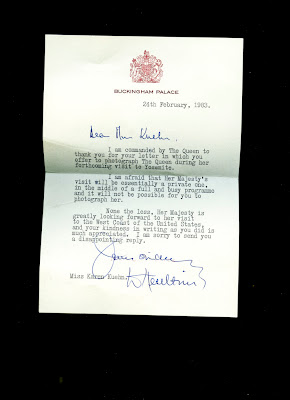 BUCKINGHAM PALACE
24th February, 1983.
Dear Miss Kuehn,
I am commanded by The Queen to
thank you for your letter in which you
offer to photograph The Queen during her
forthcoming visit to Yosemite.
I am afraid that Her Majesty's
visit will be essentially a private one,
in the middle of a full and busy programme
and it will not be possible for you to
photograph her.
None the less, Her Majesty is
greatly looking forward to her visit
to the West Coast of the United States,
and your kindness in writing as you did is
much appreciated. I am sorry to send you
a disappointing reply.
Miss Karen Kuehn.